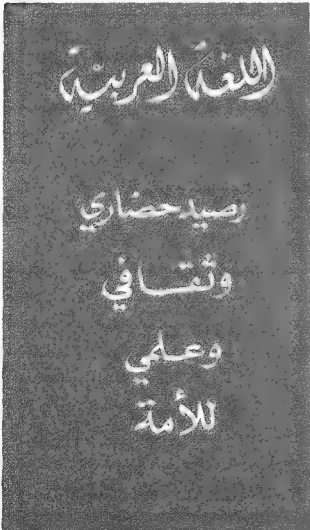 اللغة العربية
رصيد حضاري
وثقافي
وعلمي
للأمة